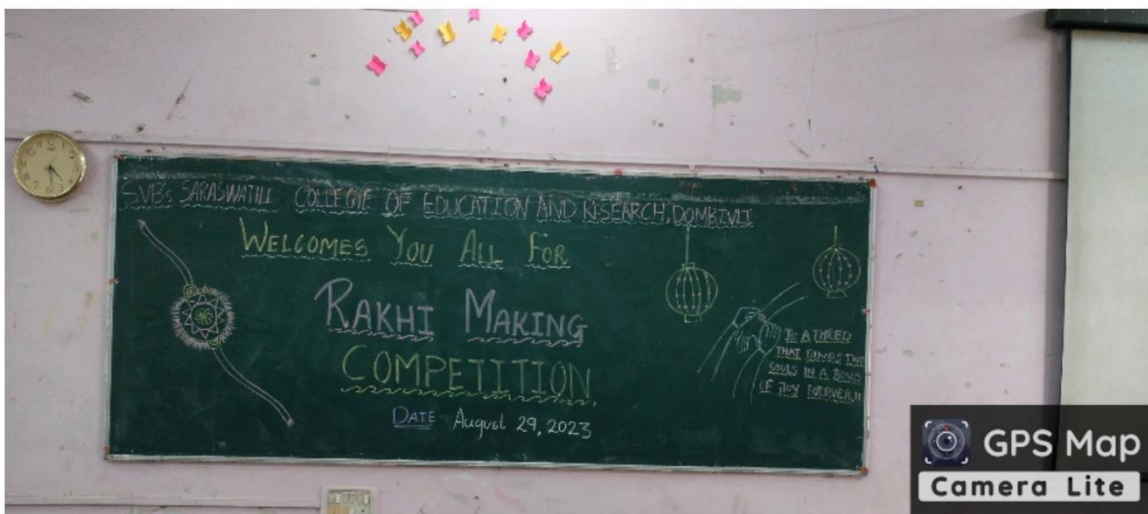 SVB's SARASWATHI COLLEGE OF EDUCATION AND RESEARCH, DOMBIVLI
WELCOMES YOU ALL FOR
RAKHI MAKING
COMPETITION
DATE August 29, 2023
IS A THRED
THAT BINDS TWO
SOULS IN A BOND
OF JOY FOREVER!!
GPS Map
Camera Lite